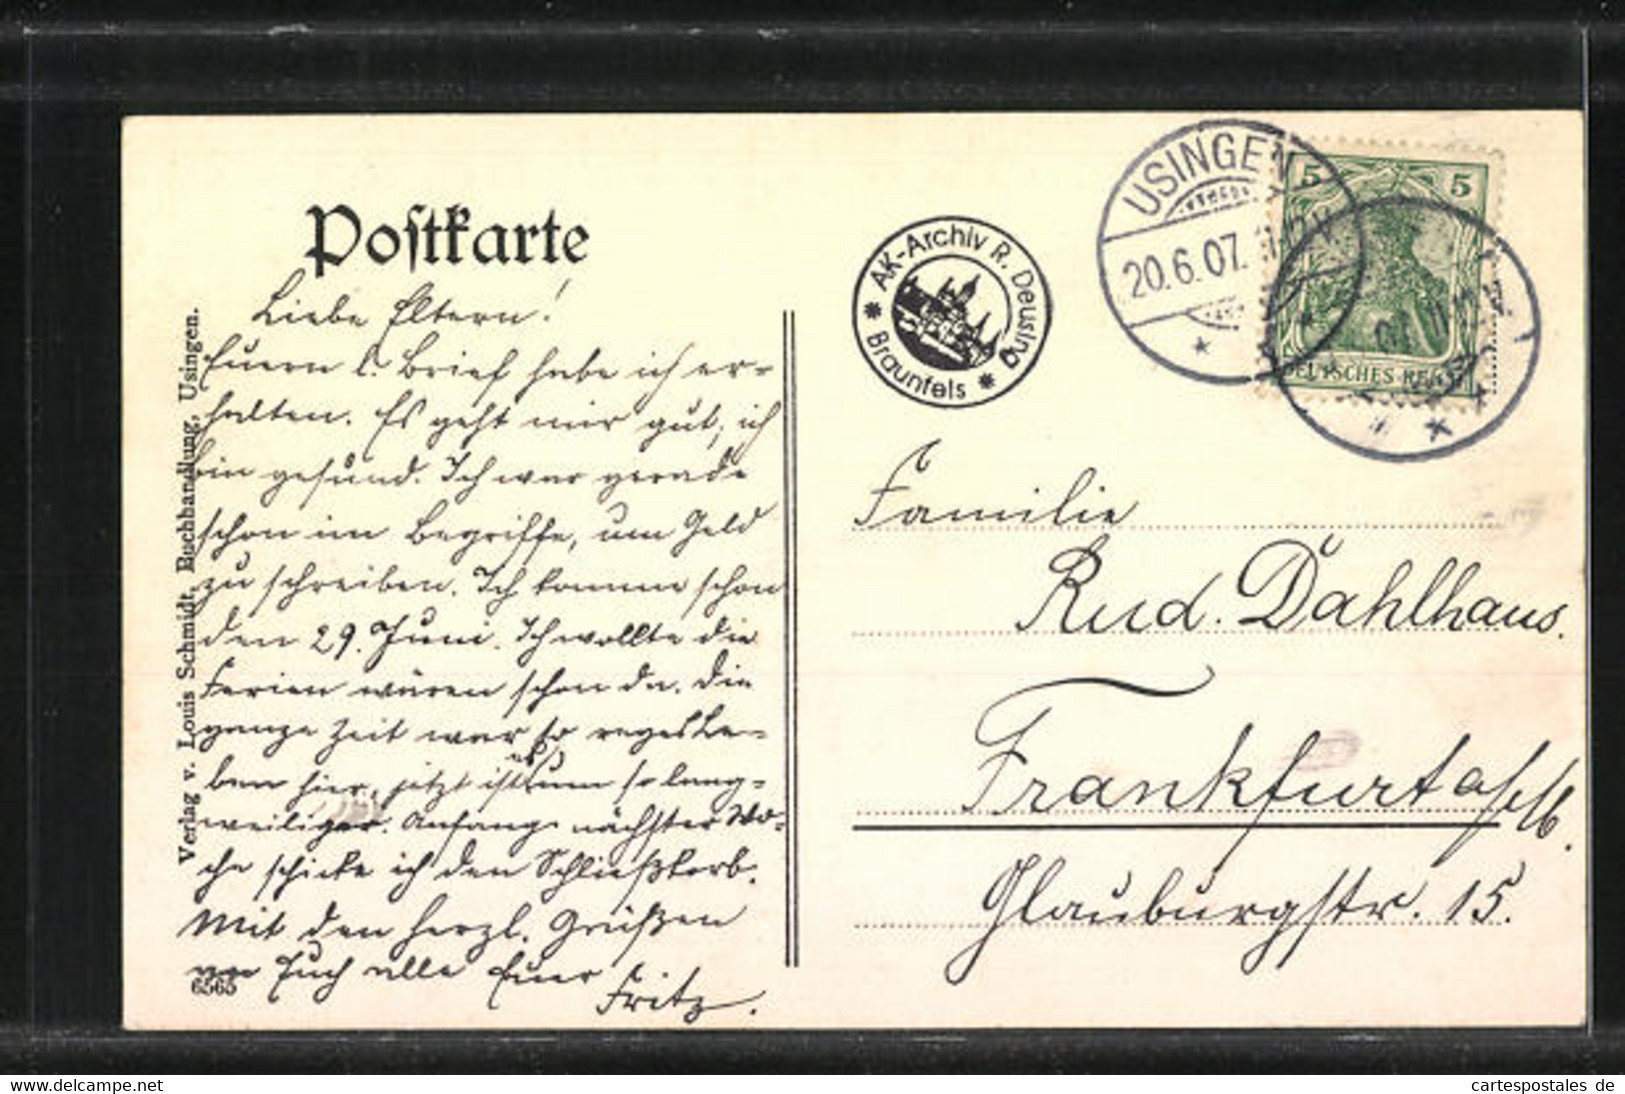 Postkarte
Liebe Eltern!
Euern l. Brief habe ich er-
halten. Es geht mir gut, ich
bin gesund. Ich war gerade
schon im Begriffe, um Geld
zu schreiben. Ich komme schon
den 29. Juni. Ich wollte die
Ferien wären schon da. Die
ganze Zeit war so reges Le-
ben hier, jetzt ist es um so lang-
weiliger. Anfang nächster Wo-
che schicke ich den Schließkorb.
Mit den herzl. Grüßen
an Euch alle Euer
Fritz.
6565
Verlag v. Louis Schmidt, Buchhandlung, Usingen.
AK-Archiv R. Deusing
* Braunfels *
USINGEN
20.6.07.
5 5
DEUTSCHES REICH
Familie
Rud. Dahlhaus.
Frankfurt a/M.
Glauburgstr. 15.
www.delcampe.net
cartespostales de